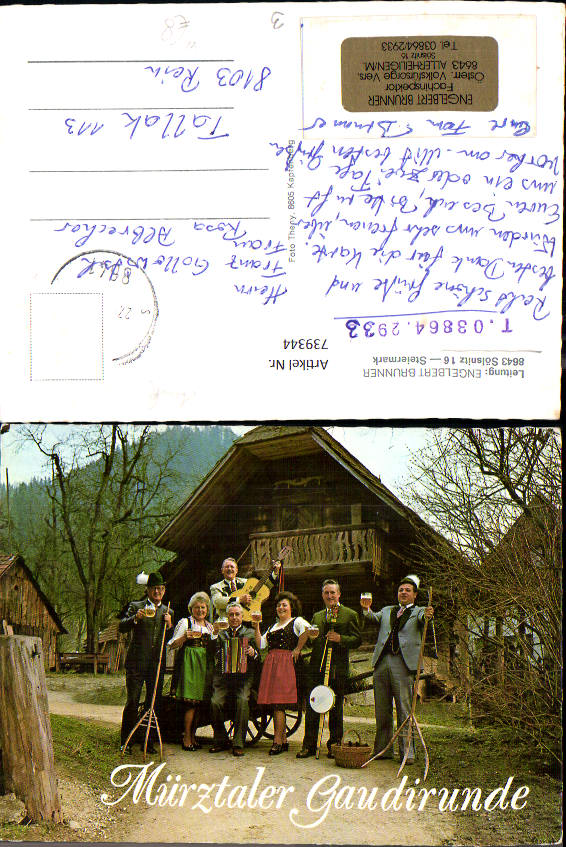 Leitung: ENGELBERT BRUNNER
8643 Sölsnitz 16 — Steiermark
T. 03864.2933
Artikel Nr.
739344
Recht schöne Grüße und
besten Dank für die Karte.
Würden uns sehr freuen, über
Euren Besuch, bitte ruft
uns ein oder zwei Tage
vorher an. Mit besten Grüßen
Eure Fam. Brunner
ENGELBERT BRUNNER
Fachinspektor
Österr. Volksfürsorge Vers.
8643 ALLERHEILIGEN/M.
Sölsnitz 16
Tel. 03864/2933
Foto Theny, 8605 Kapfenberg
Herrn
Franz
Frau
Rosa Albrecher
Tallak 113
8103 Rein
3
€8
Mürztaler Gaudirunde